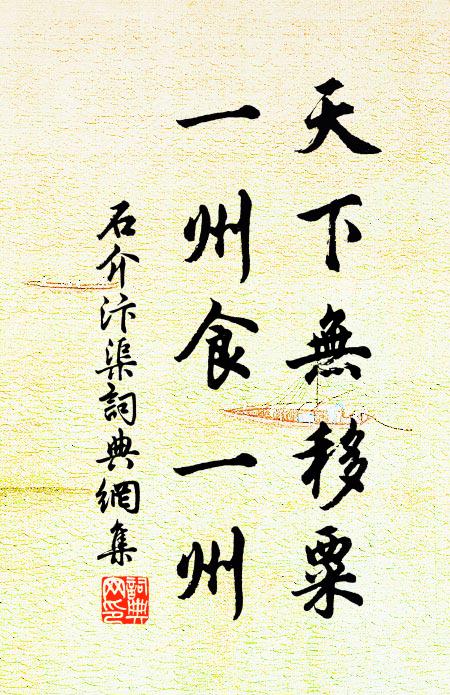 天下無移粟
一州食一州
石介汴渠詞典網集
詞典